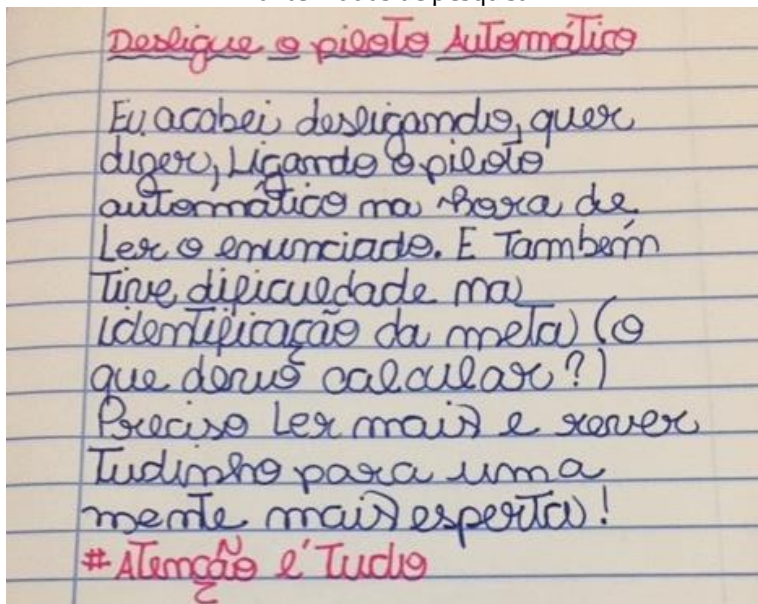 Desligue o piloto Automático
Eu acabei desligando, quer
dizer, Ligando o piloto
automático na hora de
Ler o enunciado. E Também
Tive dificuldade na
identificação da meta (o
que devo calcular?)
Preciso Ler mais e rever
Tudinho para uma
mente mais esperta!
#Atenção é Tudo